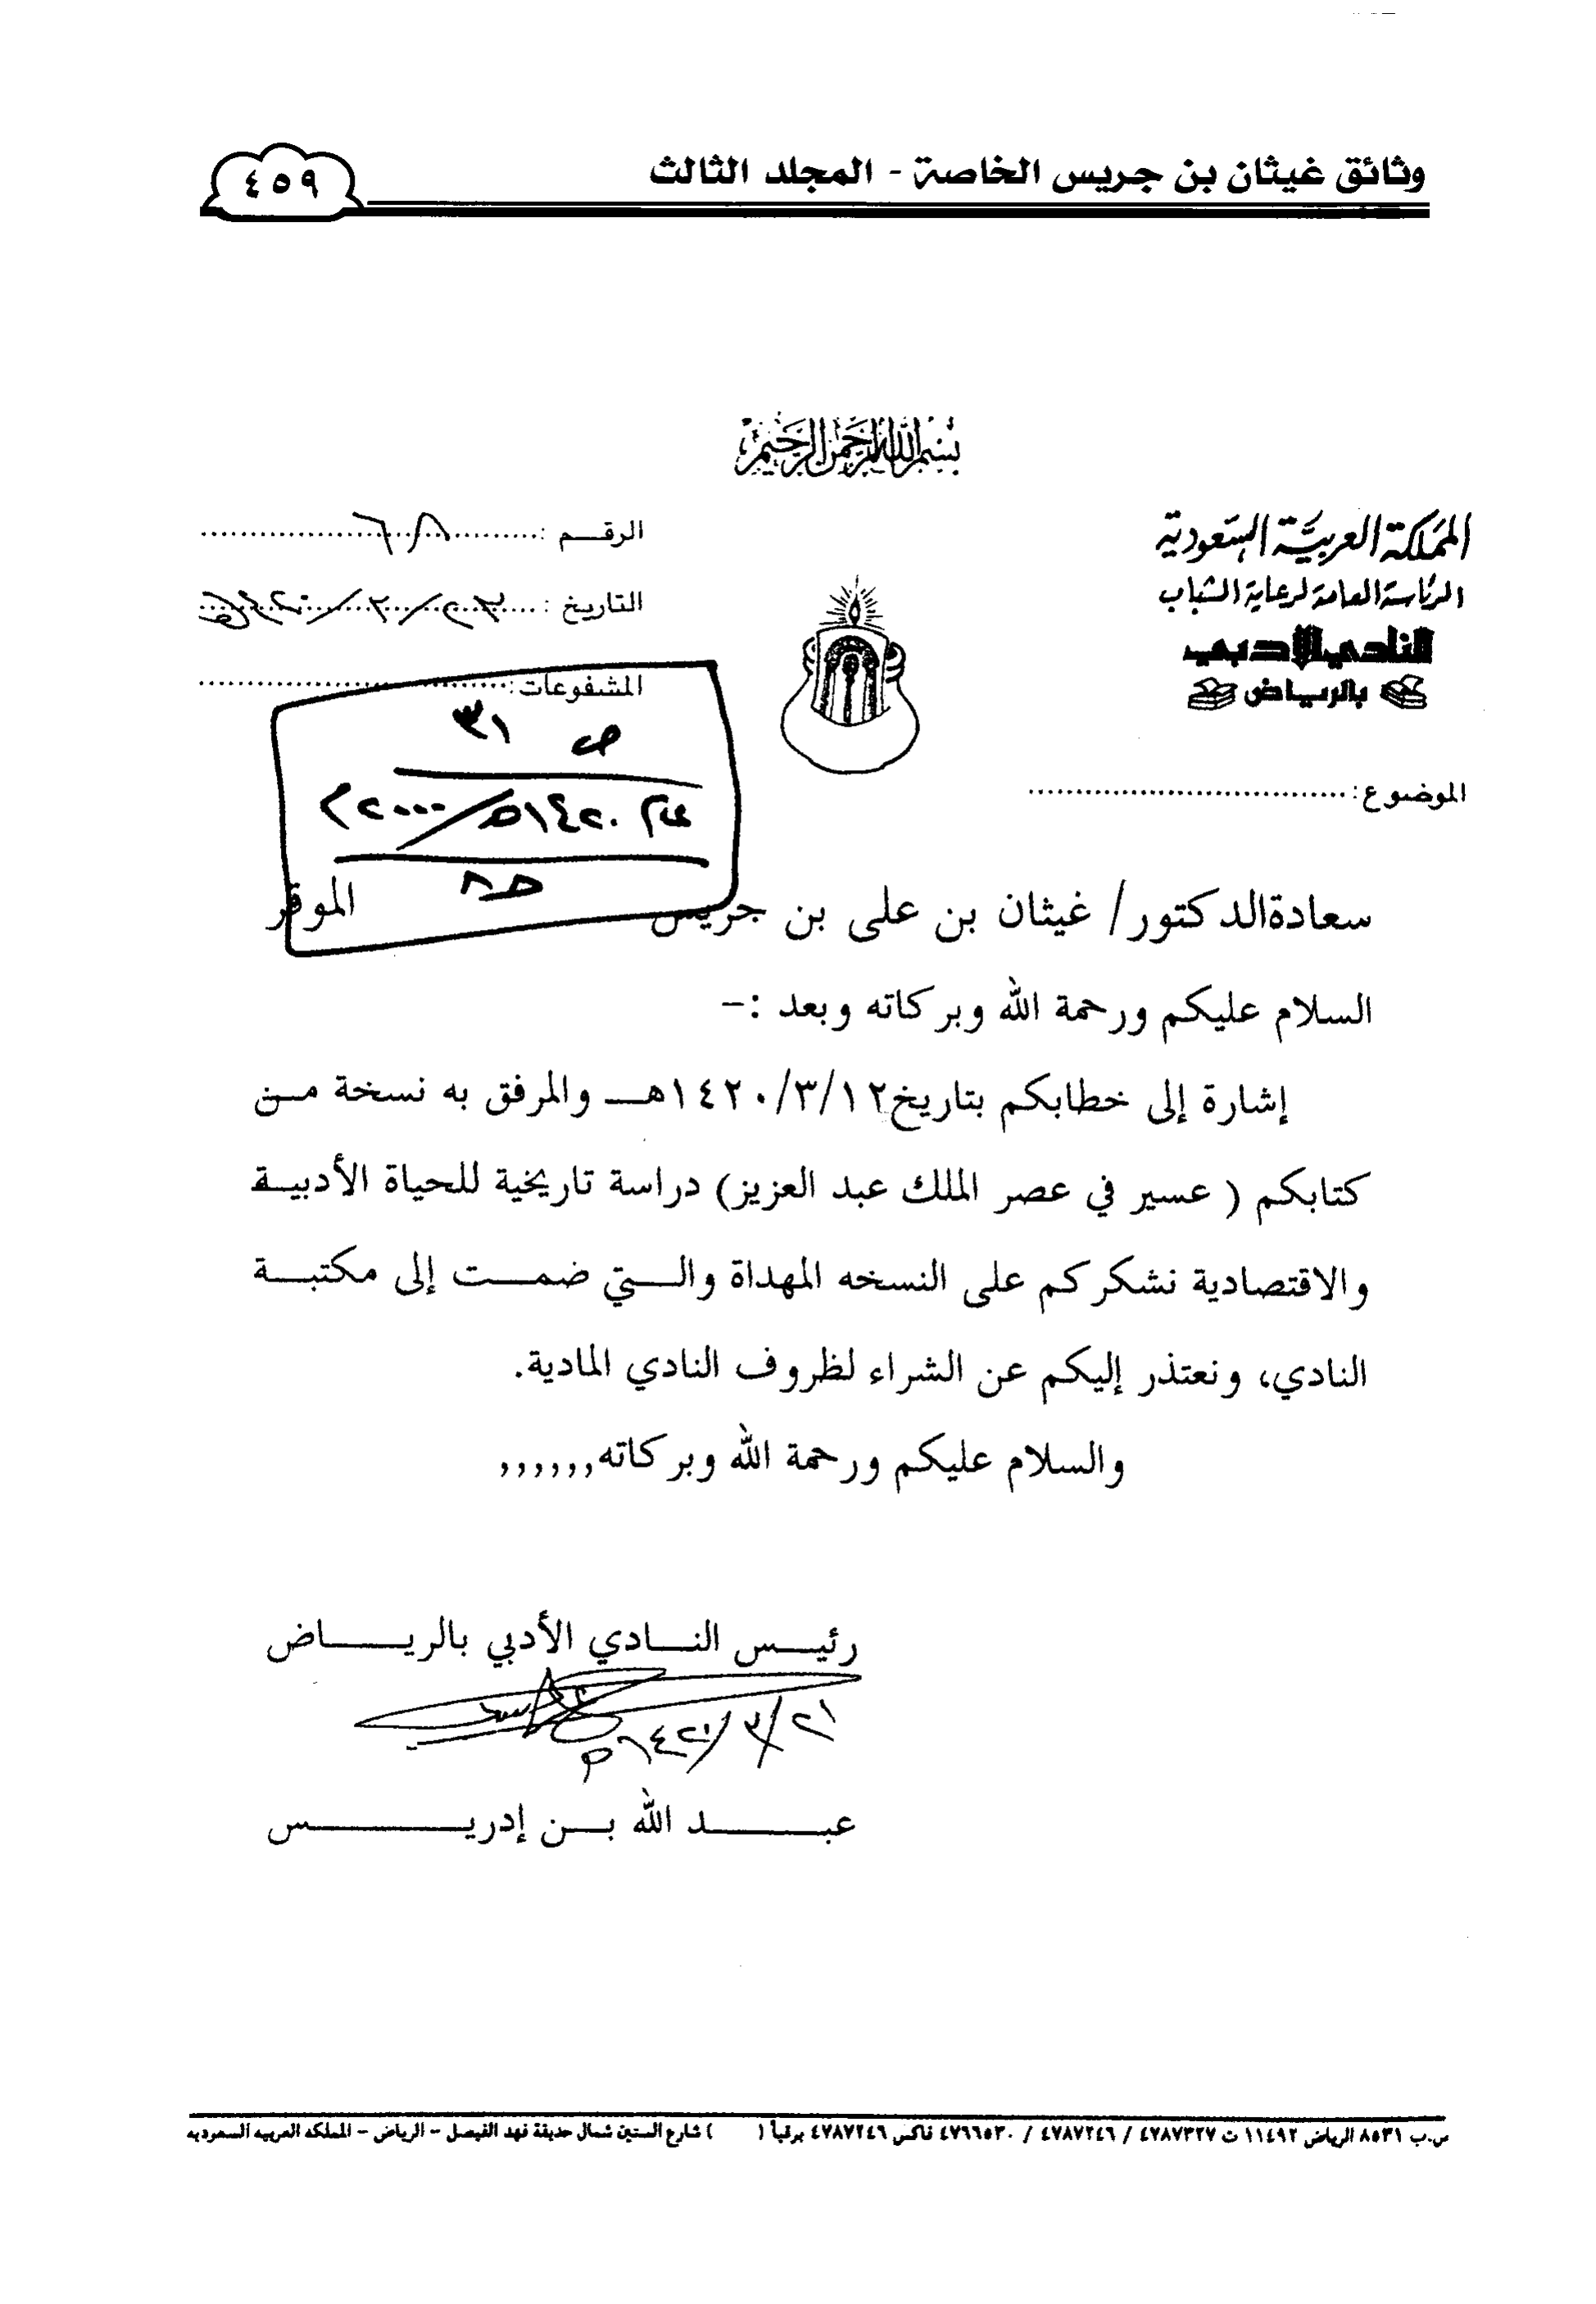 وثائق غيثان بن جريس الخاصة - المجلد الثالث
٤٥٩
بسم الله الرحمن الرحيم
المملكة العربية السعودية
الرئاسة العامة لرعاية الشباب
النادي الأدبي
بالرياض
الموضوع:
الرقم :
التاريخ :
المشفوعات:
ص ٣١
عام ١٤٢٠هـ/٢٠٠٠م
سعادةالدكتور/ غيثان بن على بن جريس الموقر
السلام عليكم ورحمة الله وبركاته وبعد :-
إشارة إلى خطابكم بتاريخ١٤٢٠/٣/١٢هـ والمرفق به نسخة من
كتابكم ( عسير في عصر الملك عبد العزيز) دراسة تاريخية للحياة الأدبية
والاقتصادية نشكركم على النسخه المهداة والتي ضمت إلى مكتبة
النادي، ونعتذر إليكم عن الشراء لظروف النادي المادية.
والسلام عليكم ورحمة الله وبركاته,,,,,,
رئيس النادي الأدبي بالرياض
٢١/٣/١٤٢٠هـ
عبد الله بن إدريس
ص.ب ٨٥٣١ الرياض ١١٤٩٢ ت ٤٧٨٧٣٢٧ / ٤٧٨٧٢٤٦ / ٤٧٦٦٥٣٠ فاكس ٤٧٨٧٢٤٦ برقياً ( ) شارع الستين شمال حديقة فهد الفيصل - الرياض - المملكه العربيه السعوديه